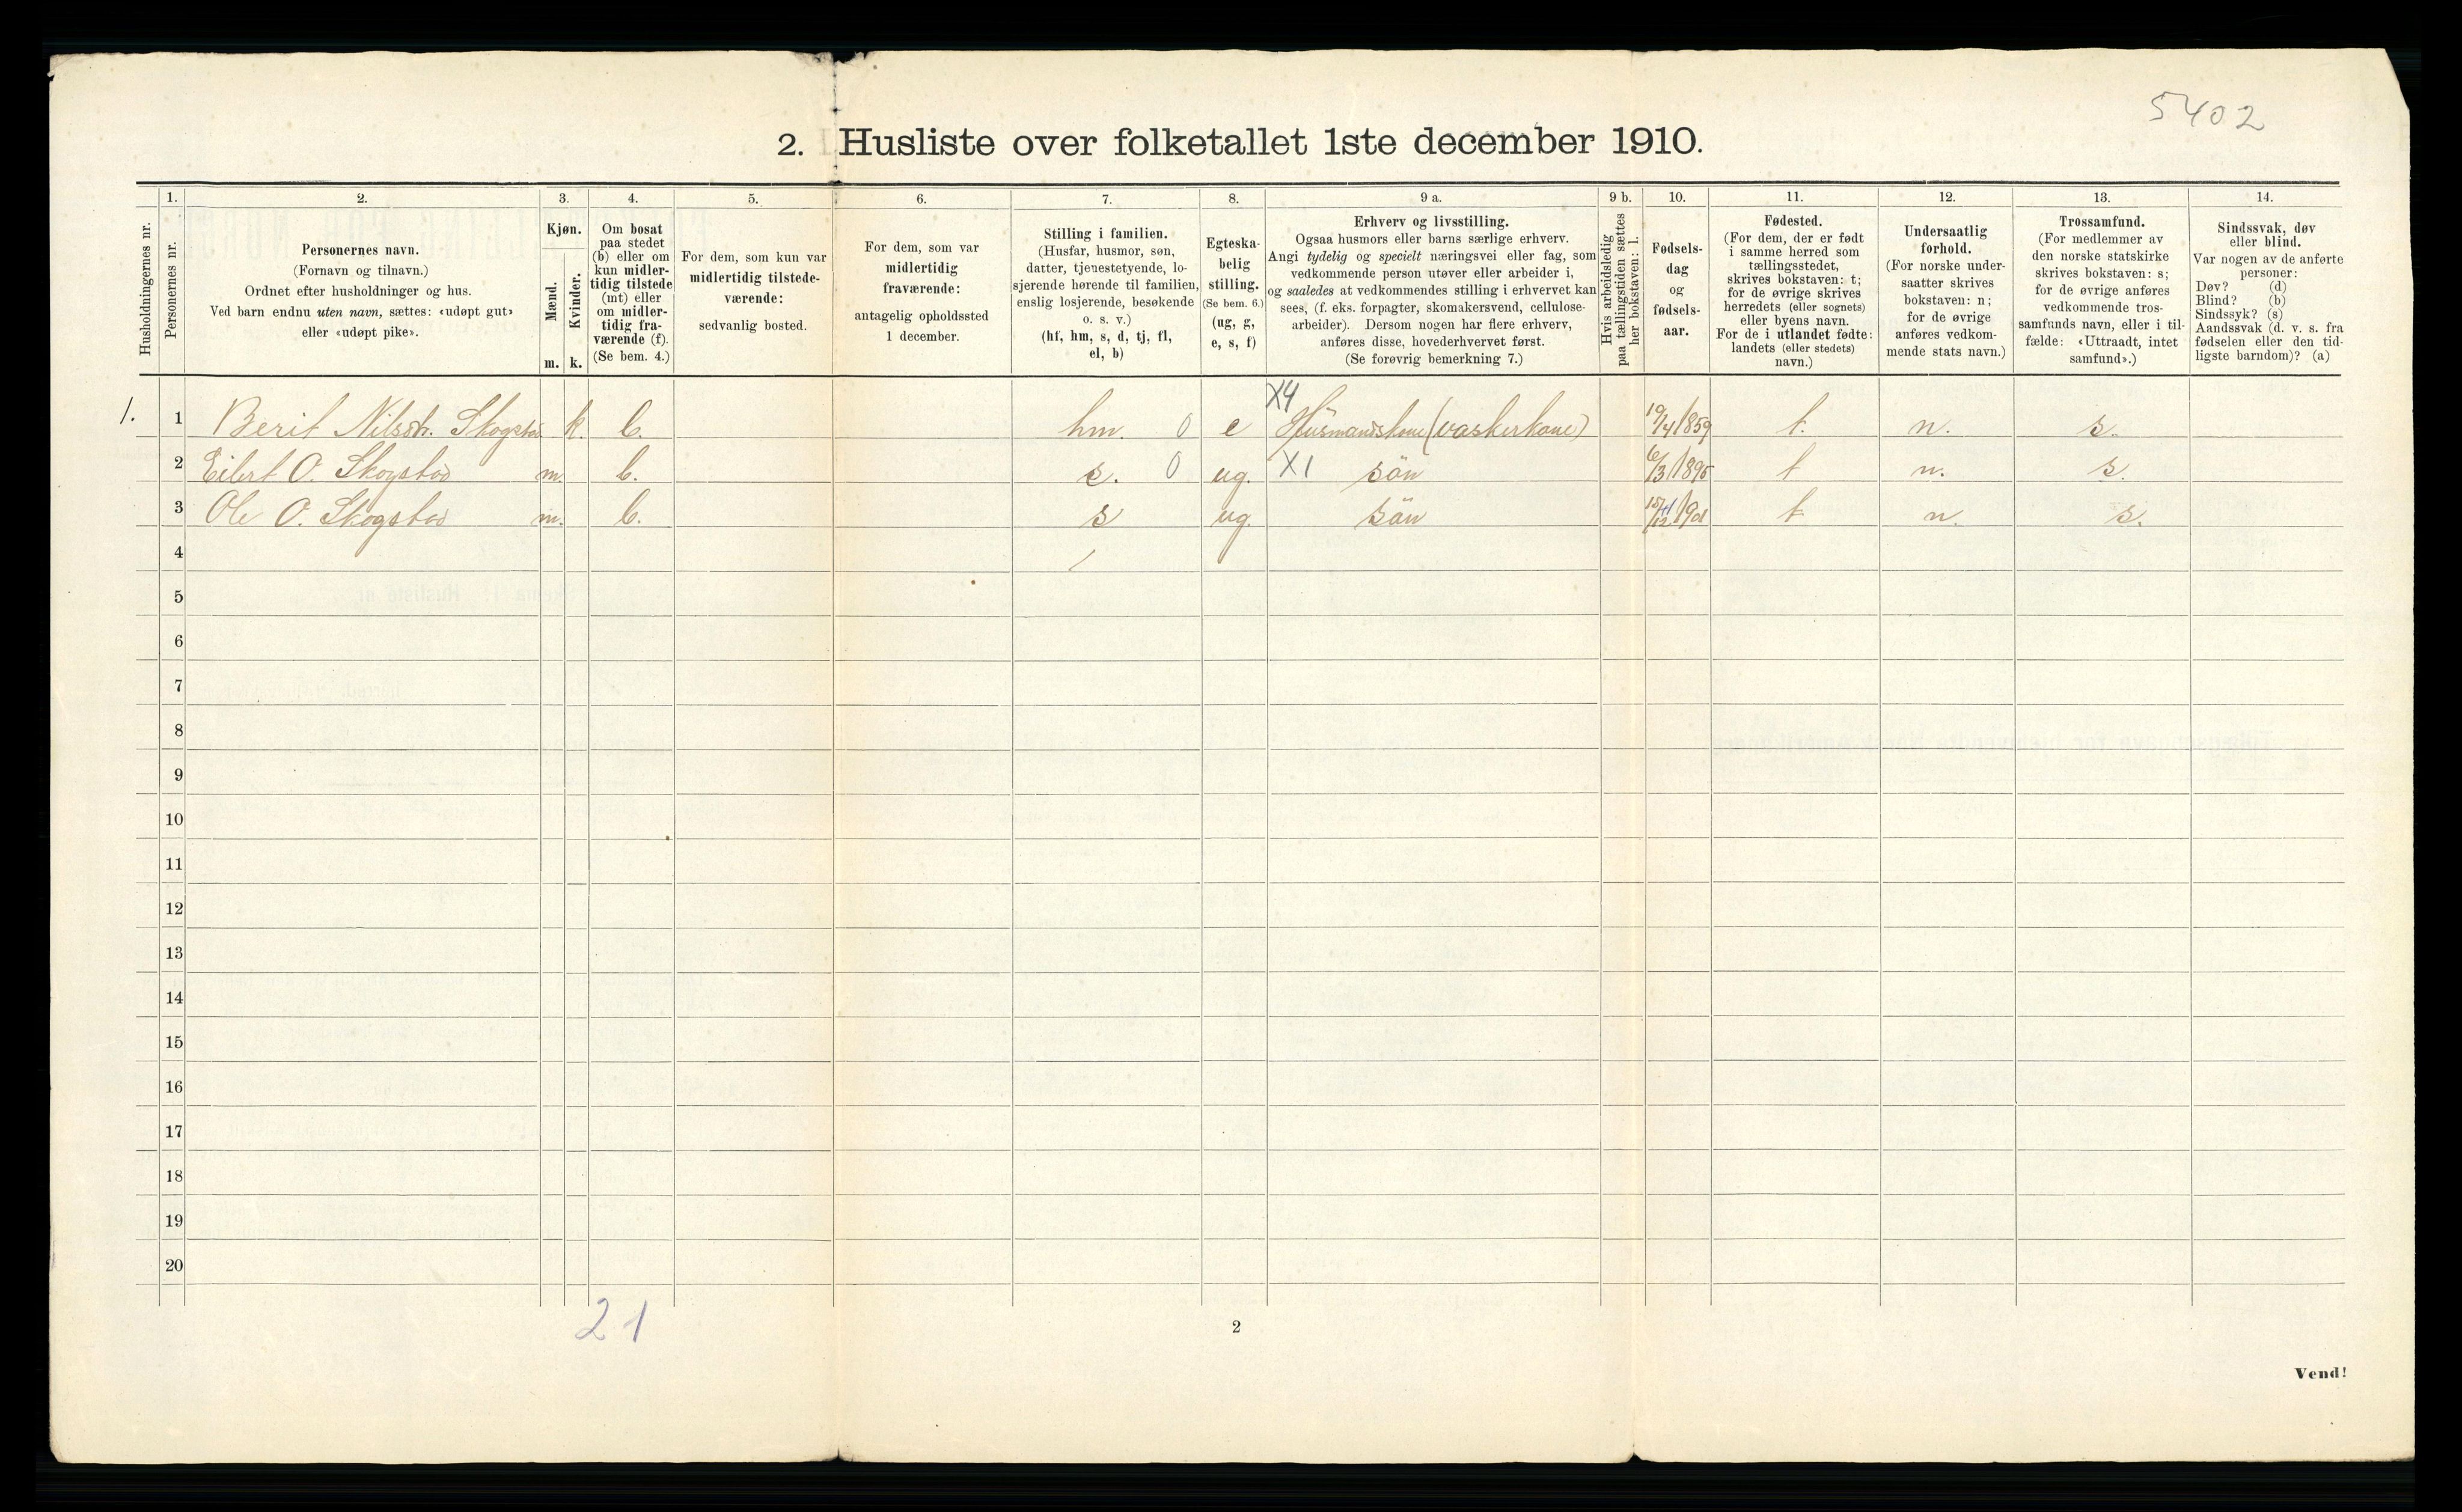 5402
2. Husliste over folketallet 1ste december 1910.
Husholdningernes nr.
1. Personernes nr.
2. Personernes navn.
(Fornavn og tilnavn.)
Ordnet efter husholdninger og hus.
Ved barn endnu uten navn, sættes: «udøpt gut»
eller «udøpt pike».
3. Kjøn.
Mænd. m.
Kvinder. k.
4. Om bosat
paa stedet
(b) eller om
kun midler-
tidig tilstede
(mt) eller
om midler-
tidig fra-
værende (f).
(Se bem. 4.)
5. For dem, som kun var
midlertidig tilstede-
værende:
sedvanlig bosted.
6. For dem, som var
midlertidig
fraværende:
antagelig opholdssted
1 december.
7. Stilling i familien.
(Husfar, husmor, søn,
datter, tjenestetyende, lo-
sjerende hørende til familien,
enslig losjerende, besøkende
o. s. v.)
(hf, hm, s, d, tj, fl,
el, b)
8. Egteska-
belig
stilling.
(Se bem. 6.)
(ug, g,
e, s, f)
9 a. Erhverv og livsstilling.
Ogsaa husmors eller barns særlige erhverv.
Angi tydelig og specielt næringsvei eller fag, som
vedkommende person utøver eller arbeider i,
og saaledes at vedkommendes stilling i erhvervet kan
sees, (f. eks. forpagter, skomakersvend, cellulose-
arbeider). Dersom nogen har flere erhverv,
anføres disse, hovederhvervet først.
(Se forøvrig bemerkning 7.)
9 b. Hvis arbeidsledig
paa tællingstiden sættes
her bokstaven: l.
10. Fødsels-
dag
og
fødsels-
aar.
11. Fødested.
(For dem, der er født
i samme herred som
tællingsstedet,
skrives bokstaven: t;
for de øvrige skrives
herredets (eller sognets)
eller byens navn.
For de i utlandet fødte:
landets (eller stedets)
navn.)
12. Undersaatlig
forhold.
(For norske under-
saatter skrives
bokstaven: n;
for de øvrige
anføres vedkom-
mende stats navn.)
13. Trossamfund.
(For medlemmer av
den norske statskirke
skrives bokstaven: s;
for de øvrige anføres
vedkommende tros-
samfunds navn, eller i til-
fælde: «Uttraadt, intet
samfund».)
14. Sindssvak, døv
eller blind.
Var nogen av de anførte
personer:
Døv? (d)
Blind? (b)
Sindssyk? (s)
Aandssvak (d. v. s. fra
fødselen eller den tid-
ligste barndom)? (a)
1. 1 Berit Nilsdtr. Skogstad k. b. hm. 0 e X4 Husmandskone (vaskerkone) 19/4 1859 t. n. s.
2 Eilert O. Skogstad m. b. s. 0 ug. X1 sön 6/3 1895 t n. s.
3 Ole O. Skogstad m. b. s ug. sön t n. s.
4
5
6
7
8
9
10
11
12
13
14
15
16
17
18
19
20
21
2
Vend!